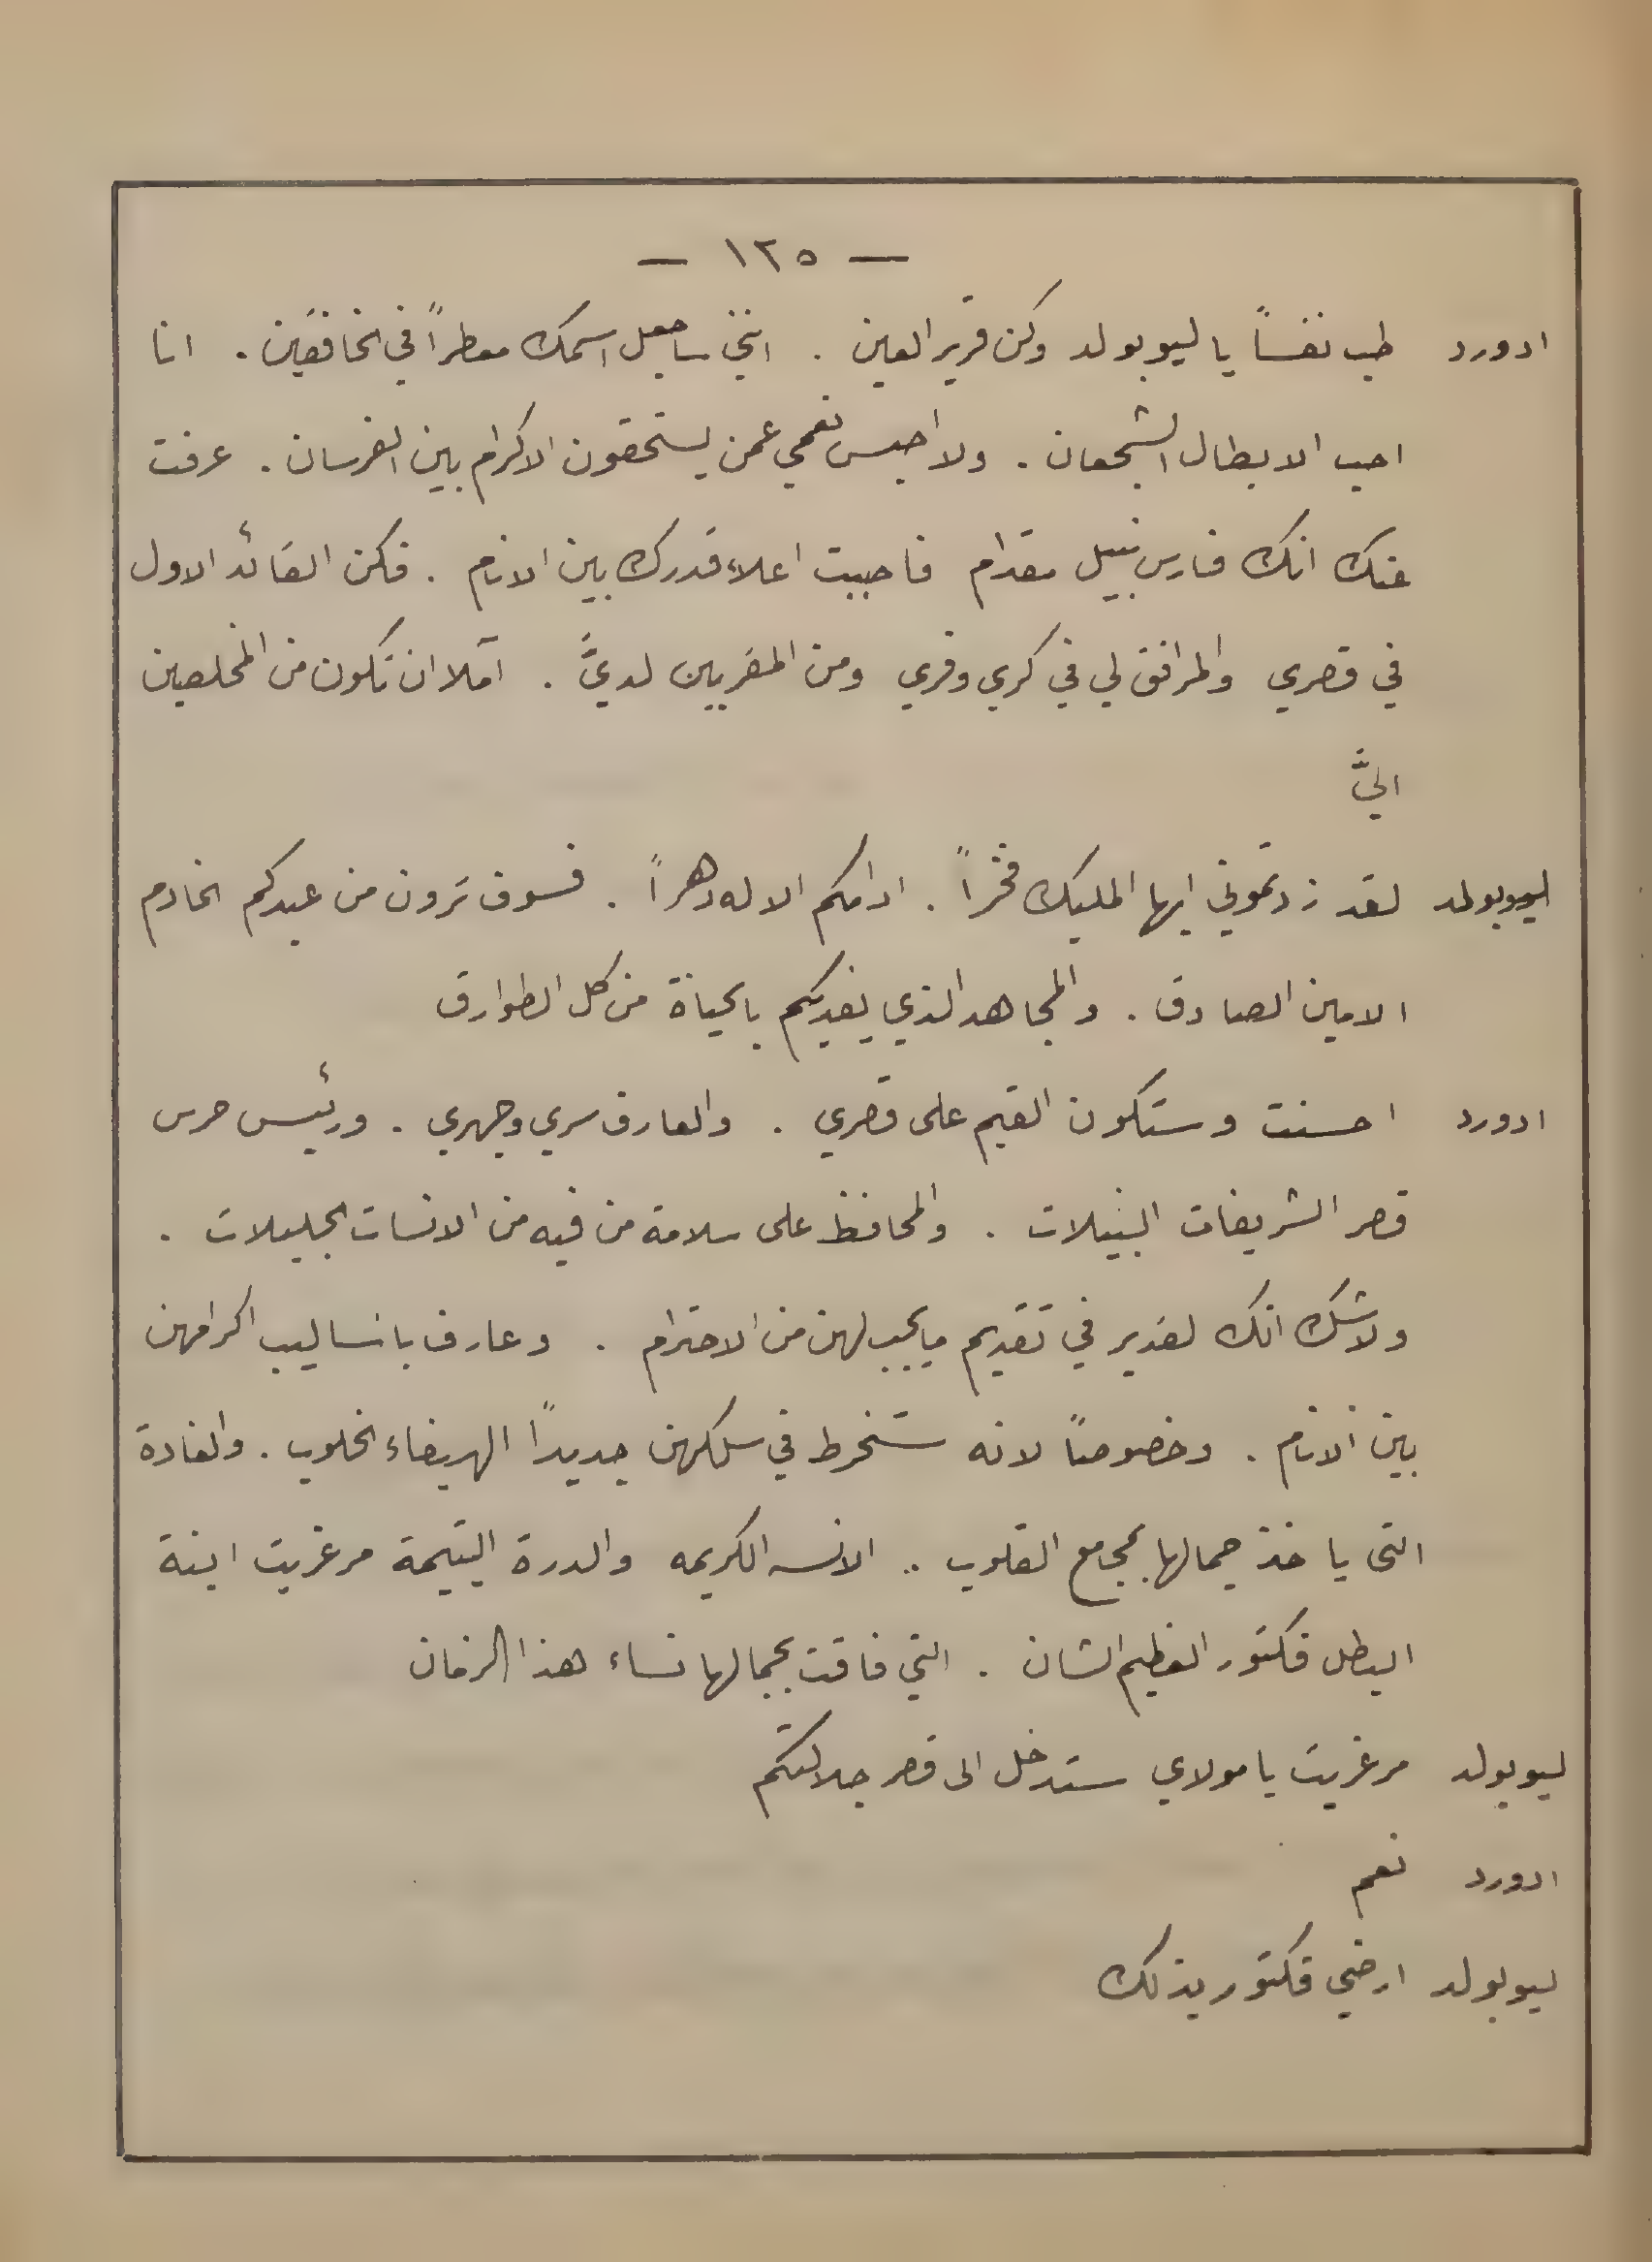 — ١٢٥ —
ادورد طب نفساً يا ليوبولد وكن قرير العين . انني ساجعل اسمك معطراً في الخافقين . انا
احب الابطال الشجعان . ولا احبس نعمي عمن يستحقون الاكرام بين الفرسان . عرفت
عنك انك فارس نبيل مقدام فاحببت اعلاء قدرك بين الانام . فكن القائد الاول
في قصري والمرافق لي في كري وفري ومن المقربين لديَّ . آملا ان تكون من المخلصين
اليَّ
ليوبولد لقد زدتموني ايها المليك فخراً . ادامكم الاله دهراً . فسوف ترون من عبدكم الخادم
الامين الصادق . والمجاهد الذي يفديكم بالحياة من كل الطوارق
ادورد احسنت وستكون القيم على قصري . والعارف سري وجهري . ورئيس حرس
قصر الشريفات النبيلات . والمحافظ على سلامة من فيه من الانسات الجليلات .
ولاشك انك لقدير في تقديم مايجب لهن من الاحترام . وعارف باساليب اكرامهن
بين الانام . وخصوصاً لانه ستنخرط في سلكهن جديداً الهيفاء الخلوب . والغادة
التى ياخذ جمالها بمجامع القلوب .. الانسه الكريمه والدرة اليتيمة مرغريت ابنة
البطل فكتور العظيم الشان . التي فاقت بجمالها نساء هذا الزمان
ليوبولد مرغريت يا مولاي ستدخل الى قصر جلالتكم
ادورد نعم
ليوبولد ارضي فكتور بذلك